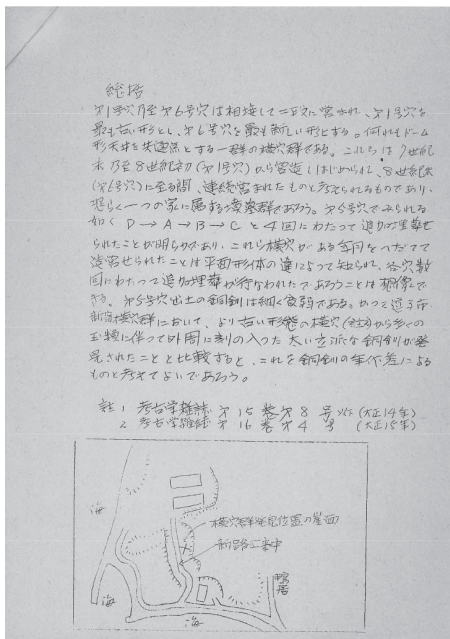 総括
第1号穴乃至第6号穴は相接して一段に営まれ、第1号穴を
最も古い形とし、第6号穴を最も新しい形とする。何れもドーム
形天井を共通点とする一群の横穴群である。これらは7世紀
末乃至8世紀初(第1号穴)から営造しはじめられ、8世紀末
(第6号穴)に至る間、連続営まれたものと考えられるものであり、
恐らく一つの家に属する墳墓群であろう。第5号穴でみられる
如く D→A→B→Cと4回にわたって追加埋葬せ
られたことが明らかであり、これら横穴がある年月をへだてて
営せられたことは平面形体の違によって知られ、各穴数
回にわたって追加埋葬が行なわれたであろうことは想像で
きる。第5号穴出土の銅釧は細く貧弱である。かつて逗子市
新宿横穴群において、より古い形態の横穴(註2)から多くの
玉類に伴って外周に刻の入った太い立派な銅釧が発
見されたことと比較すると、これを銅釧の年代差による
ものと考えてよいであろう。
註 1 考古学雑誌 第15巻 第8号 (大正14年)
2 考古学雑誌 第16巻 第4号 (大正15年)
横穴群発見位置の崖面
新道路工事中
海
鴨居
海
海